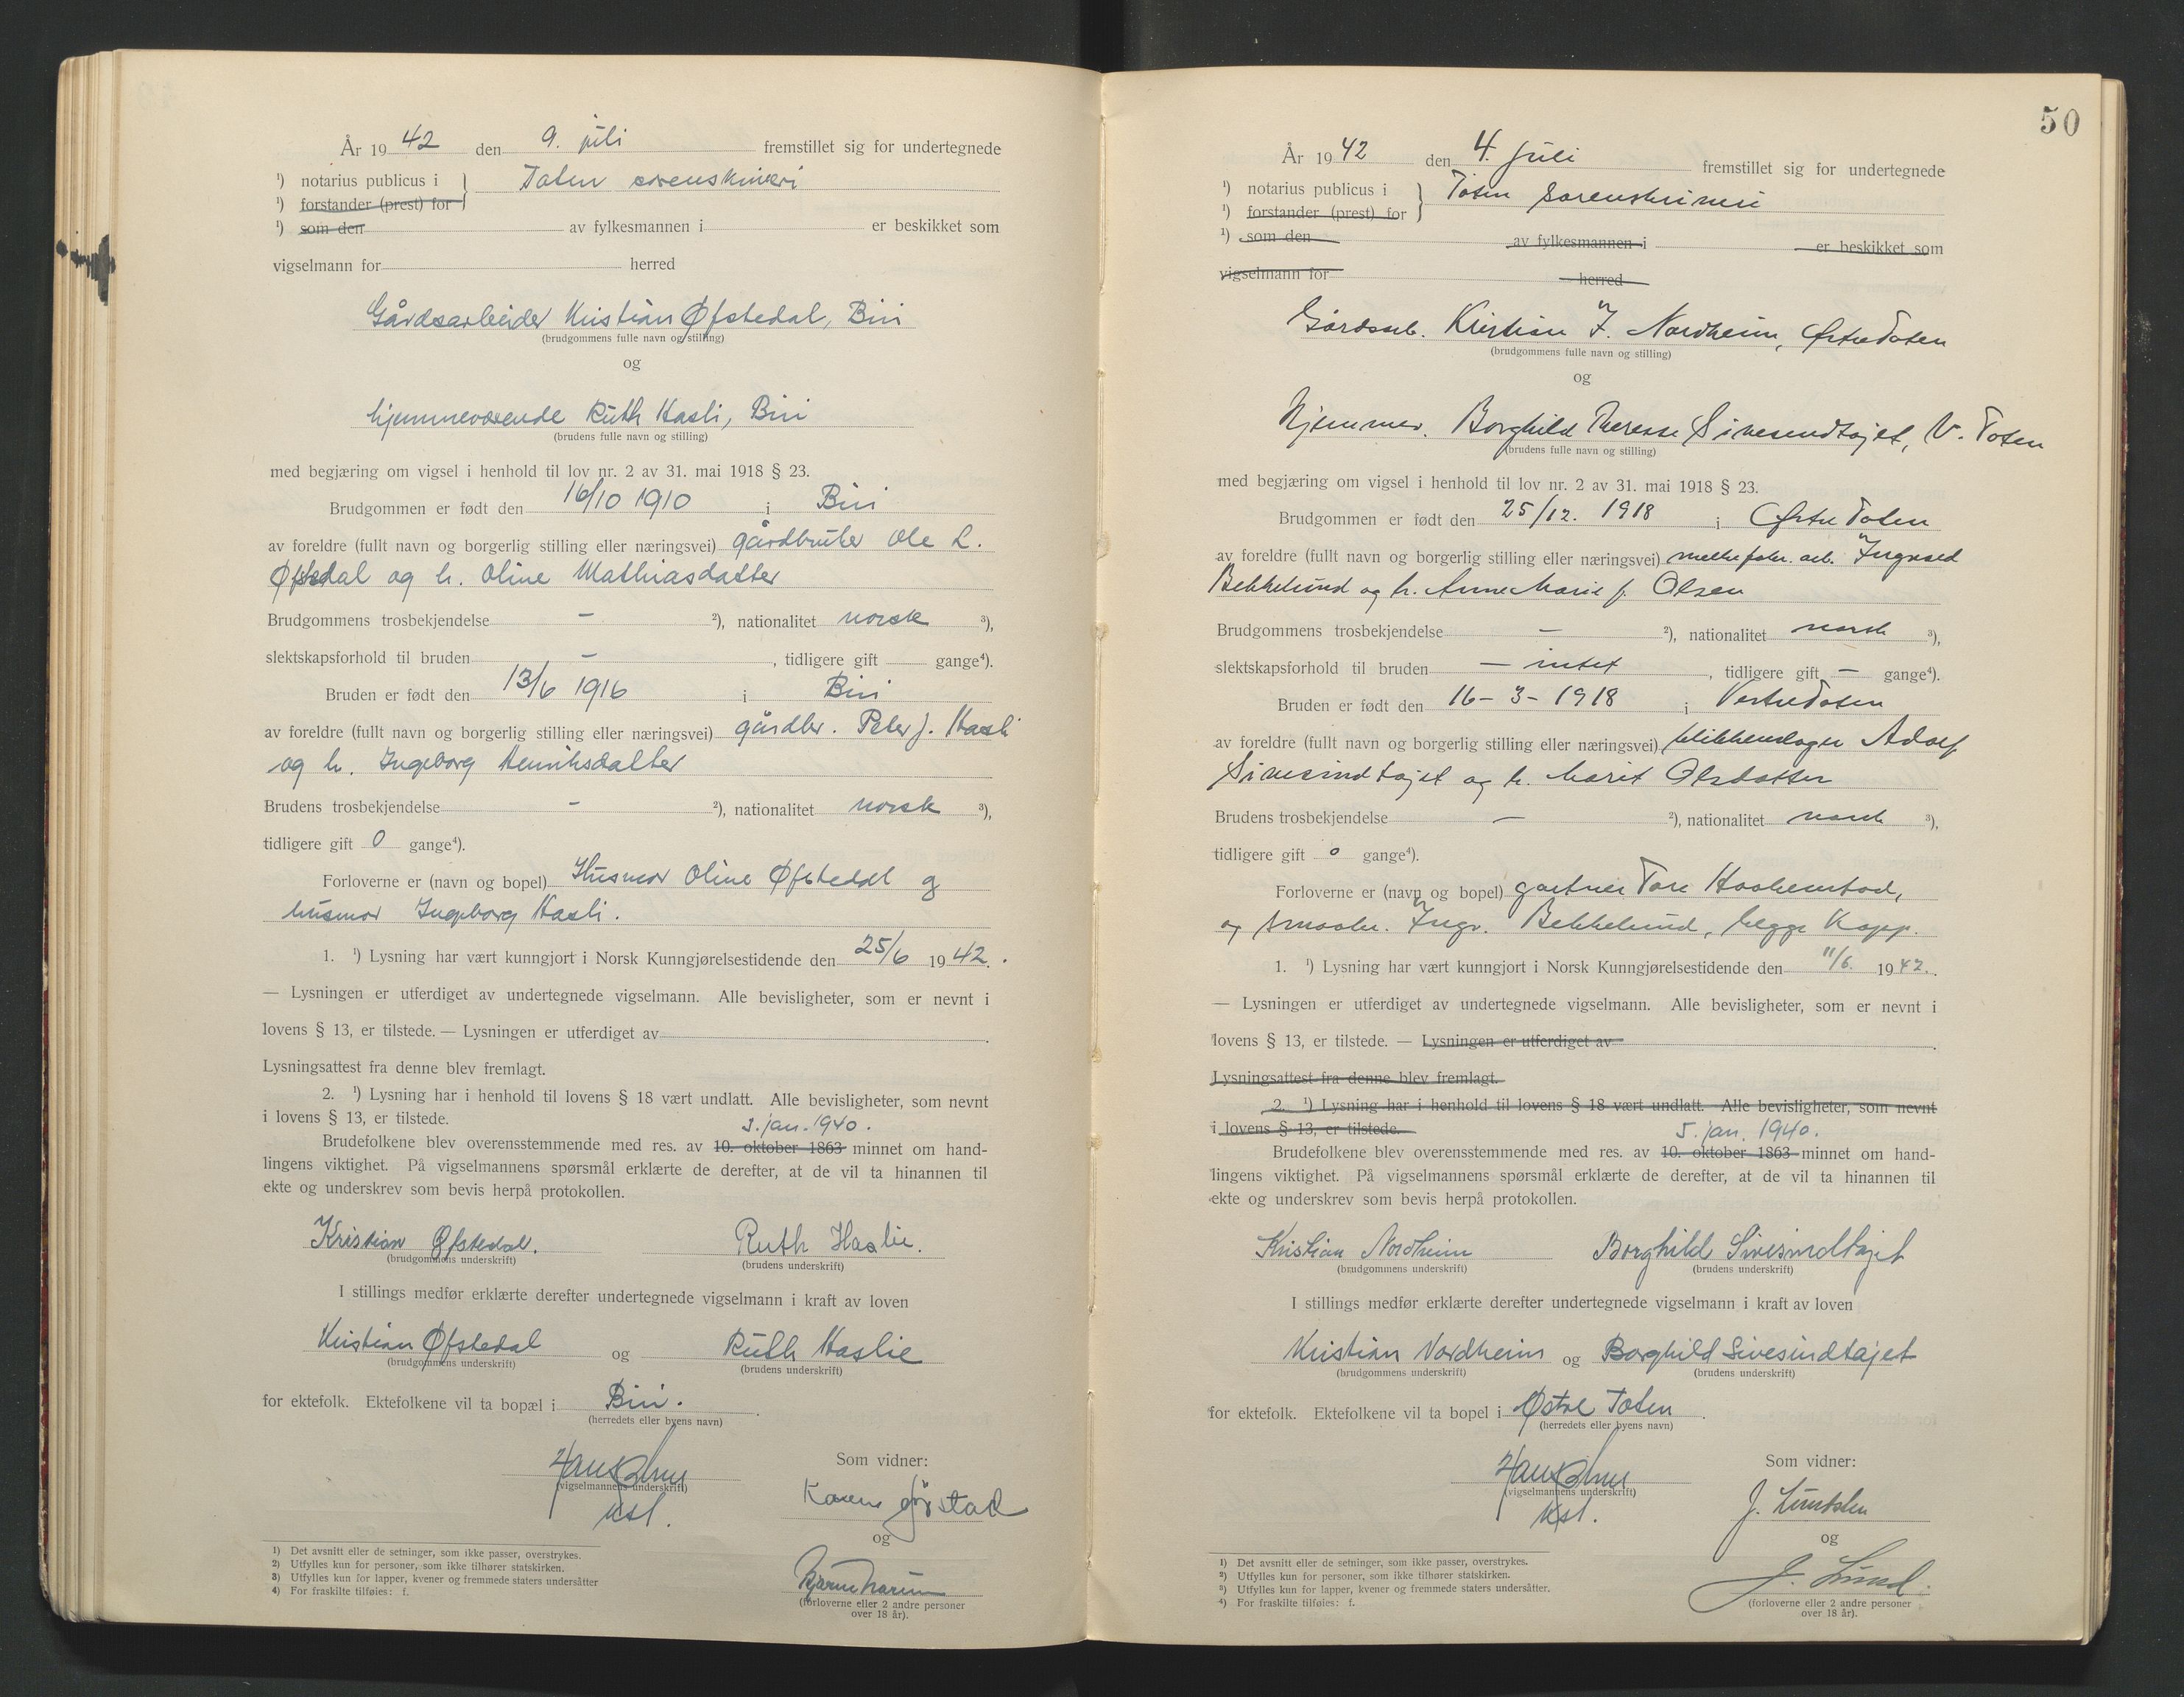 År 19 42 den 9. juli fremstillet sig for undertegnede
¹) notarius publicus i } Toten sorenskriveri
¹) forstander (prest) for
¹) som den av fylkesmannen i er beskikket som
vigselmann for herred
Gårdsarbeider Kristian Øfstedal, Biri
(brudgommens fulle navn og stilling)
og
hjemmeværende Ruth Hasli, Biri
(brudens fulle navn og stilling)
med begjæring om vigsel i henhold til lov nr. 2 av 31. mai 1918 § 23.
Brudgommen er født den 16/10 1910 i Biri
av foreldre (fullt navn og borgerlig stilling eller næringsvei) gårdbruker Ole L.
Øfstedal og h. Oline Mathiasdatter
Brudgommens trosbekjendelse - ²), nationalitet norsk ³),
slektskapsforhold til bruden - , tidligere gift gange⁴).
Bruden er født den 13/6 1916 i Biri
av foreldre (fullt navn og borgerlig stilling eller næringsvei) gårdbr. Peter J. Hasli
og h. Ingeborg Henriksdatter
Brudens trosbekjendelse - ²), nationalitet norsk ³),
tidligere gift 0 gange⁴).
Forloverne er (navn og bopel) Husmor Oline Øfstedal og
husmor Ingeborg Hasli.
1. ¹) Lysning har vært kunngjort i Norsk Kunngjørelsestidende den 25/6 19 42.
— Lysningen er utferdiget av undertegnede vigselmann. Alle bevisligheter, som er nevnt i
lovens § 13, er tilstede. — Lysningen er utferdiget av .
Lysningsattest fra denne blev fremlagt.
2. ¹) Lysning har i henhold til lovens § 18 vært undlatt. Alle bevisligheter, som nevnt
i lovens § 13, er tilstede.
5. jan. 1940.
Brudefolkene blev overensstemmende med res. av 10. oktober 1863 minnet om hand-
lingens viktighet. På vigselmannens spørsmål erklærte de derefter, at de vil ta hinannen til
ekte og underskrev som bevis herpå protokollen.
Kristian Øfstedal. Ruth Haslie.
(brudgommens underskrift) (brudens underskrift)
I stillings medfør erklærte derefter undertegnede vigselmann i kraft av loven
Kristian Øfstedal og Ruth Haslie
(brudgommens underskrift) (brudens underskrift)
for ektefolk. Ektefolkene vil ta bopæl i Biri.
(herredets eller byens navn)
Som vidner:
(vigselmannens underskrift)
kst.
og
(forloverne eller 2 andre personer
over 18 år).
1) Det avsnitt eller de setninger, som ikke passer, overstrykes.
2) Utfylles kun for personer, som ikke tilhører statskirken.
3) Utfylles kun for lapper, kvener og fremmede staters undersåtter
4) For fraskilte tilføies: f.
50
År 19 42 den 4. juli fremstillet sig for undertegnede
¹) notarius publicus i } Toten sorenskriveri
¹) forstander (prest) for
¹) som den av fylkesmannen i er beskikket som
vigselmann for herred
Gårdsarb. Kristian I. Nordheim, Østre Toten
(brudgommens fulle navn og stilling)
og
Hjemmev. Borghild Therese Sivesindtajet, V. Toten
(brudens fulle navn og stilling)
med begjæring om vigsel i henhold til lov nr. 2 av 31. mai 1918 § 23.
Brudgommen er født den 25/12. 1918 i Østre Toten
av foreldre (fullt navn og borgerlig stilling eller næringsvei) melkefabr. arb. Ingvald
Bekkelund og h. Anne Marie f. Olsen
Brudgommens trosbekjendelse — ²), nationalitet norsk ³),
slektskapsforhold til bruden — intet , tidligere gift — gange⁴).
Bruden er født den 16-3-1918 i Vestre Toten
av foreldre (fullt navn og borgerlig stilling eller næringsvei) blikkenslager Adolf
Sivesindtajet og h. Marit Olsdatter
Brudens trosbekjendelse — ²), nationalitet norsk ³),
tidligere gift 0 gange⁴).
Forloverne er (navn og bopel) gartner Tore
og smaabr. Ingv. Bekkelund, begge Kapp.
1. ¹) Lysning har vært kunngjort i Norsk Kunngjørelsestidende den 11/6. 19 42.
— Lysningen er utferdiget av undertegnede vigselmann. Alle bevisligheter, som er nevnt i
lovens § 13, er tilstede. — Lysningen er utferdiget av .
Lysningsattest fra denne blev fremlagt.
2. ¹) Lysning har i henhold til lovens § 18 vært undlatt. Alle bevisligheter, som nevnt
i lovens § 13, er tilstede.
5. jan. 1940.
Brudefolkene blev overensstemmende med res. av 10. oktober 1863 minnet om hand-
lingens viktighet. På vigselmannens spørsmål erklærte de derefter, at de vil ta hinannen til
ekte og underskrev som bevis herpå protokollen.
Kristian Nordheim Borghild Sivesindtajet
(brudgommens underskrift) (brudens underskrift)
I stillings medfør erklærte derefter undertegnede vigselmann i kraft av loven
Kristian Nordheim og Borghild Sivesindtajet
(brudgommens underskrift) (brudens underskrift)
for ektefolk. Ektefolkene vil ta bopel i Østre Toten .
(herredets eller byens navn)
Som vidner:
(vigselmannens underskrift)
kst.
og
J. Lund.
(forloverne eller 2 andre personer
over 18 år).
¹) Det avsnitt eller de setninger, som ikke passer, overstrykes.
²) Utfylles kun for personer, som ikke tilhører statskirken.
³) Utfylles kun for lapper, kvener og fremmede staters undersåtter.
⁴) For fraskilte tilføies: f.